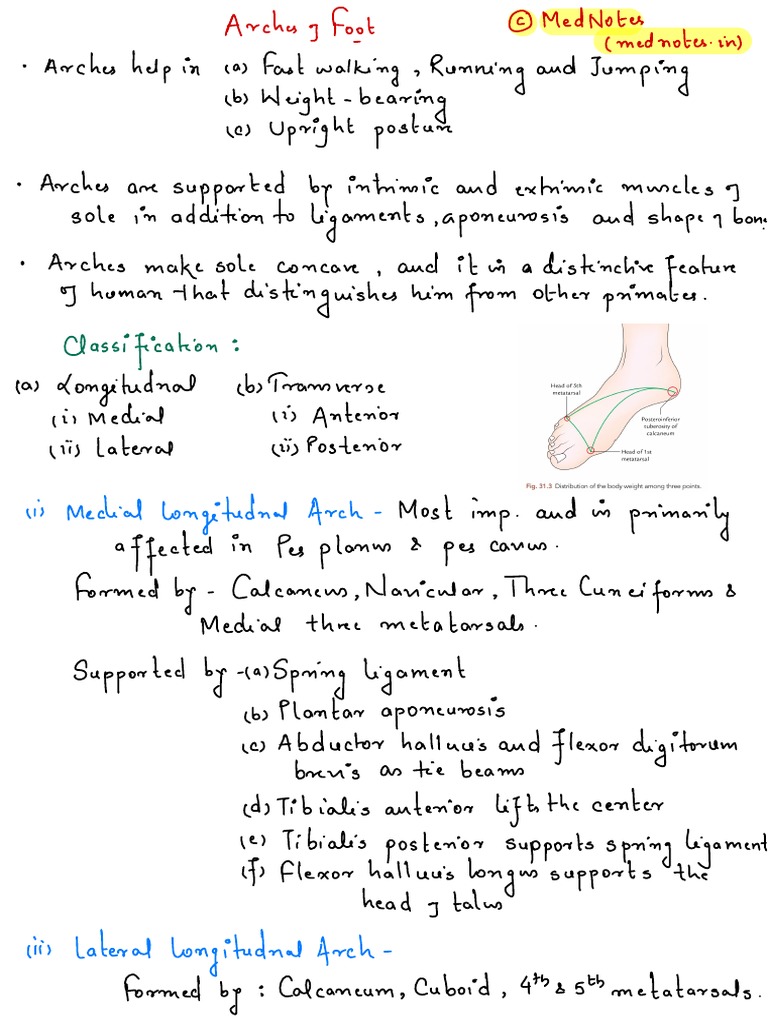 Arches of Foot
© MedNotes
(mednotes.in)
• Arches help in (a) Fast walking, Running and Jumping
(b) Weight-bearing
(c) Upright posture
• Arches are supported by intrinsic and extrinsic muscles of
sole in addition to ligaments, aponeurosis and shape of bone
• Arches make sole concave, and it is a distinctive feature
of human that distinguishes him from other primates.
Classification :
(a) Longitudnal (b) Transverse
(i) Medial (i) Anterior
(ii) Lateral (ii) Posterior
Head of 5th
metatarsal
Posteroinferior
tuberosity of
calcaneum
Head of 1st
metatarsal
Fig. 31.3 Distribution of the body weight among three points.
(i) Medial Longitudnal Arch - Most imp. and is primarily
affected in Pes planus & pes cavus.
Formed by - Calcaneus, Navicular, Three Cuneiforms &
Medial three metatarsals.
Supported by - (a) Spring ligament
(b) Plantar aponeurosis
(c) Abductor hallucis and flexor digitorum
brevis as tie beams
(d) Tibialis anterior lifts the center
(e) Tibialis posterior supports spring ligament
(f) Flexor hallucis longus supports the
head of talus
(ii) Lateral Longitudnal Arch -
Formed by : Calcaneum, Cuboid, 4th & 5th metatarsals.